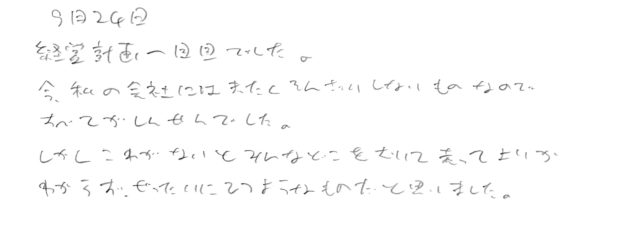 9月24日
経営計画一回目でした。
今、私の会社にはまったくそんざいしないものなので
すべてがしんせんでした。
しかしこれがないとみんなどこをむいて走ってよいか
わからず、ぜったいにひつようなものだと思いました。